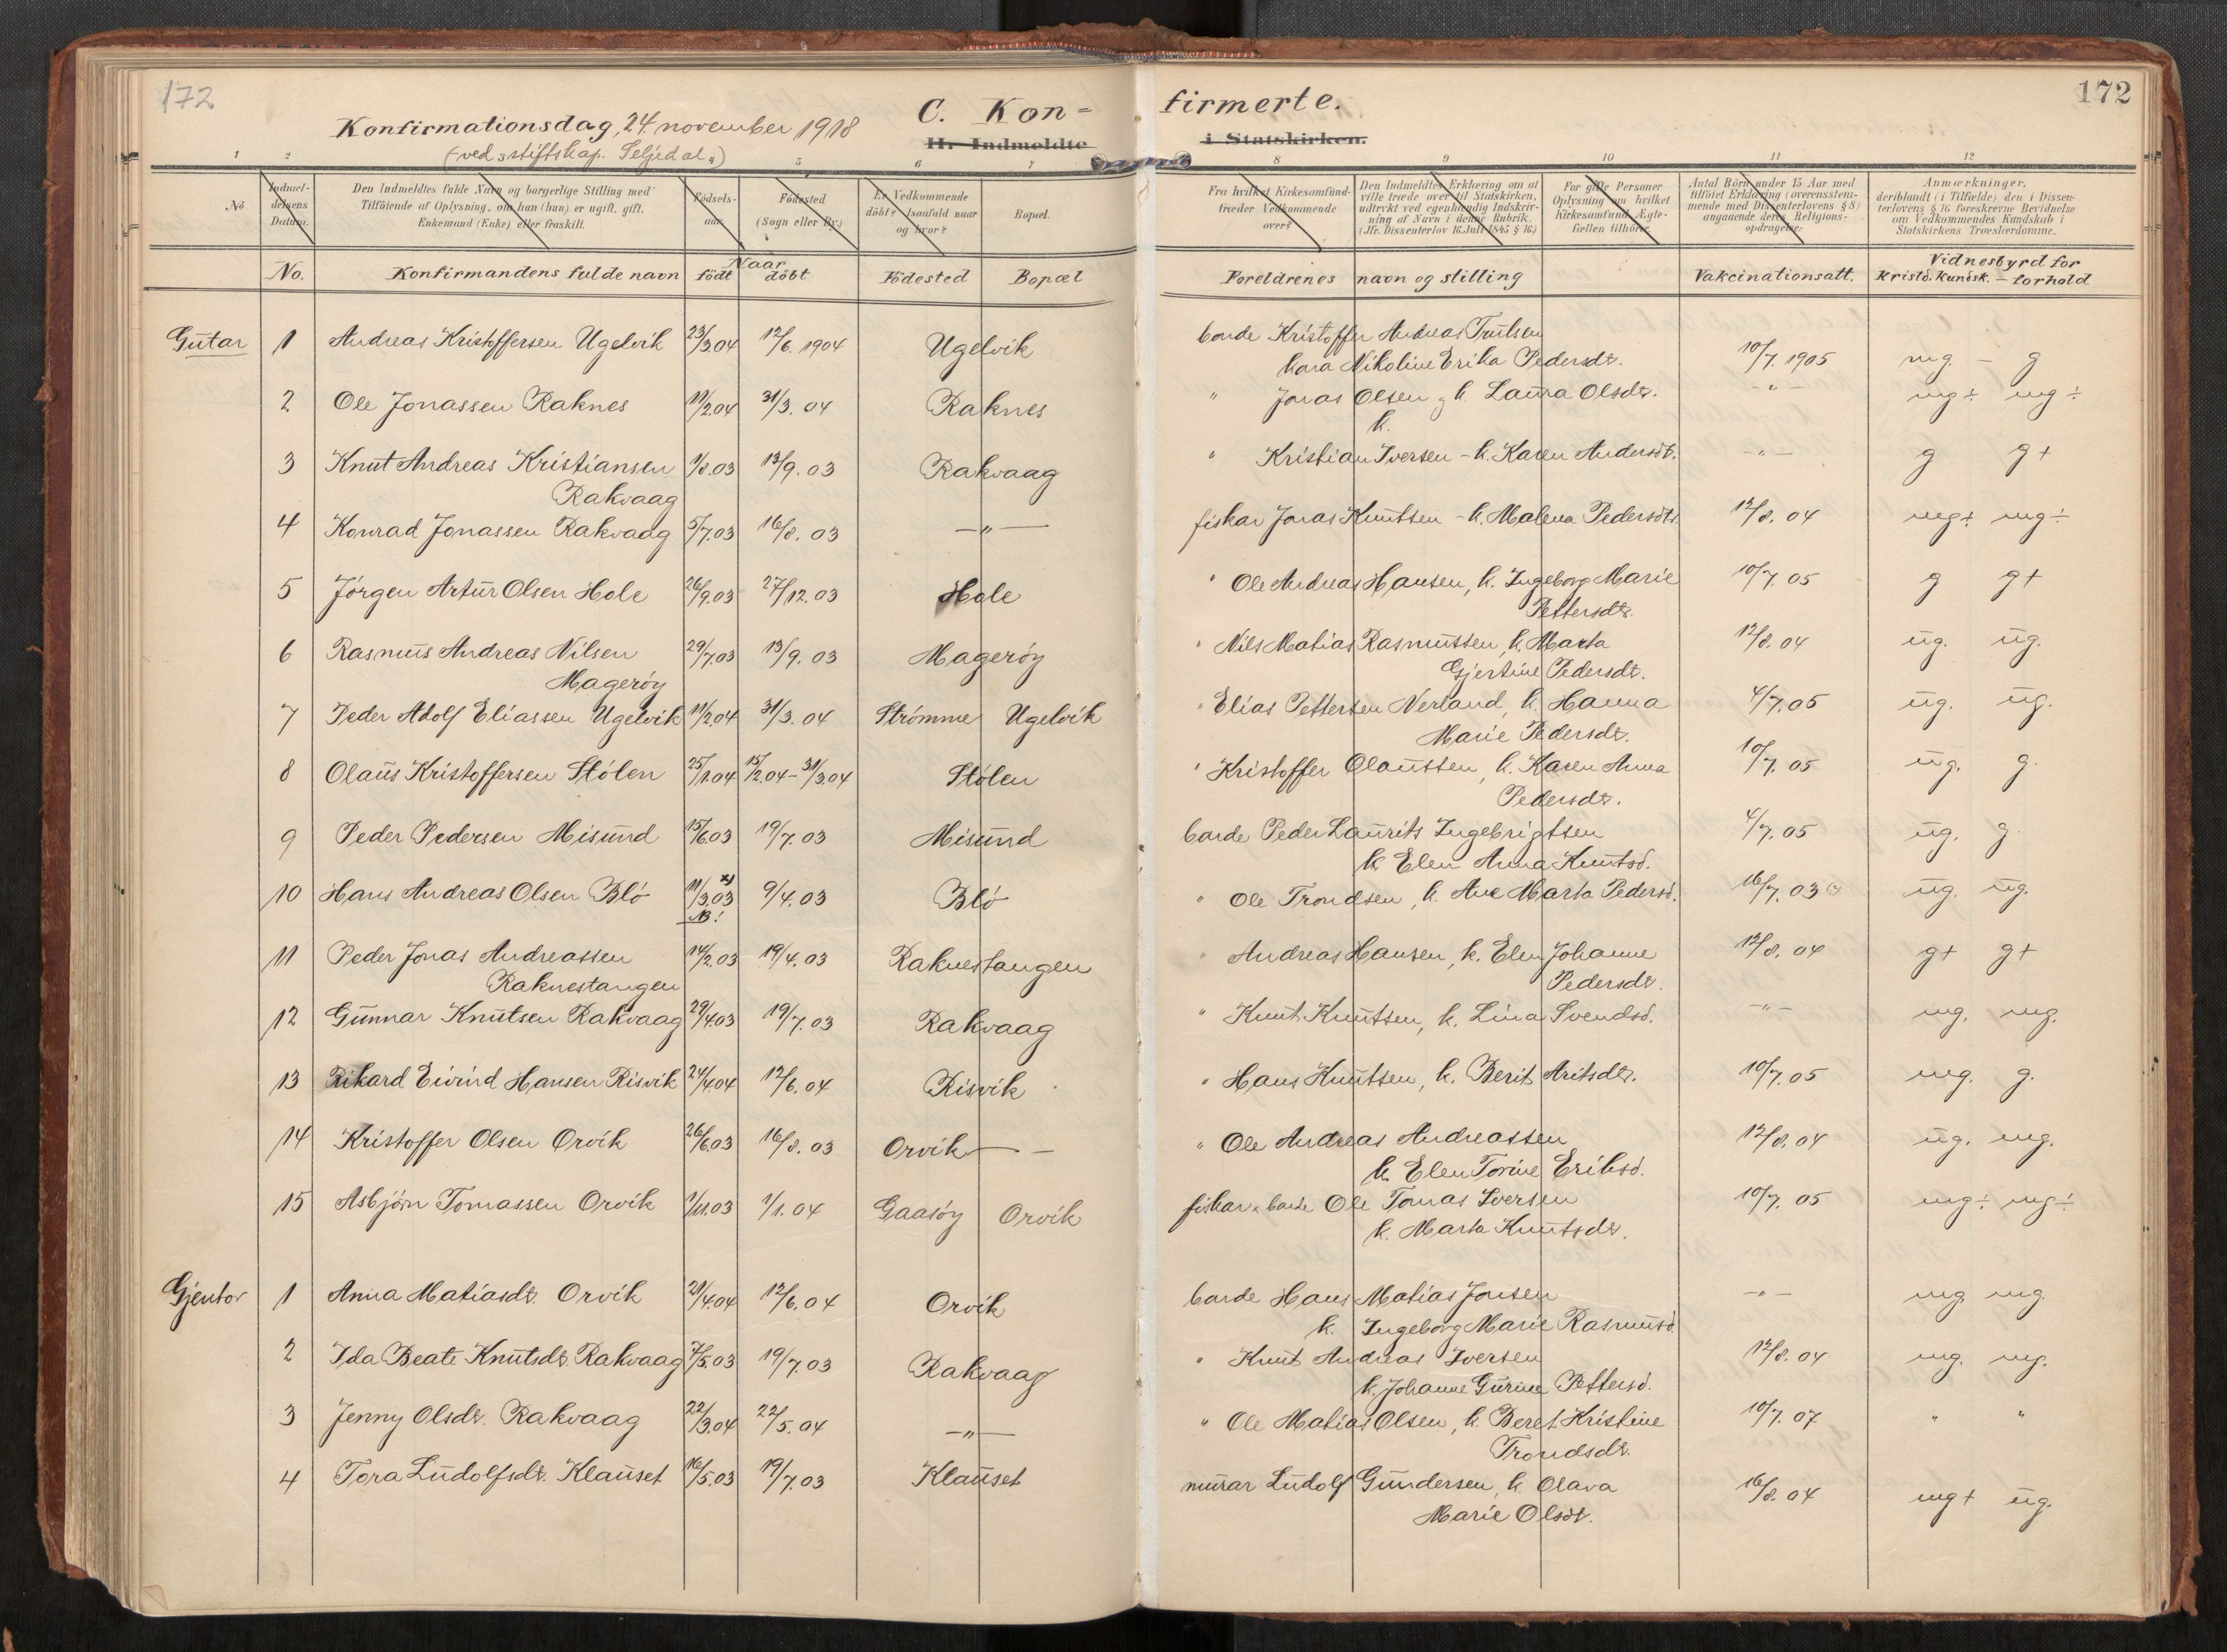 172
172
C. Kon=
firmerte.
Konfirmationsdag, 24. november 1918
(ved „stiftskap. Seljedal„)
II. Indmeldte
i Statskirken.
1 2 5 6 7 8 9 10 11 12
No
Indmel-
delsens
Datum.
Den Indmeldtes fulde Navn og borgerlige Stilling med
Tilføiende af Oplysning, om han (hun) er ugift, gift,
Enkemand (Enke) eller fraskilt.
Fødsels-
aar.
Fødested
(Sogn eller By.)
Er Vedkommende
døbt? Isaafald naar
og hvor?
Bopæl.
Fra hvilket Kirkesamfund
træder Vedkommende
over?
Den Indmeldtes Erklæring om at
ville træde over til Statskirken,
udtrykt ved egenhændig Indskriv-
ning af Navn i denne Rubrik.
(Jfr. Dissenterlov 16 Juli 1845 § 16.)
For gifte Personer
Oplysning om hvilket
Kirkesamfund Ægte-
fællen tilhører.
Antal Børn under 15 Aar med
tilføiet Erklæring (overensstem-
mende med Dissenterlovens § 8)
angaaende deres Religions-
opdragelse.
Anmærkninger,
deriblandt (i Tilfælde) den i Dissen-
terlovens § 16 foreskrevne Bevidnelse
om Vedkommendes Kundskab i
Statskirkens Troeslærdomme.
No. Konfirmandens fulde navn Naar født døbt Fødested Bopæl Foreldrenes navn og stilling Vakcinationsatt. Vidnesbyrd for
kristd. kundsk. – forhold
Gutar 1 Andreas Kristoffersen Ugelvik 23/3.04 12/6. 1904 Ugelvik bonde Kristoffer Andreas Trulsen
kona Nikoline Erika Pedersdt. 10/7. 1905 mg. – g
2 Ole Jonassen Raknes 11/2.04 31/3. 04 Raknes " Jonas Olsen k. Laura Olsdt. –"– mg÷ mg÷
k.
3 Knut Andreas Kristiansen 1/8.03 13/9. 03 Rakvaag " Kristian Iversen – k. Karen Andersdt. –"– g g+
Rakvaag
4 Konrad Jonassen Rakvaag 5/7.03 16/8. 03 –"– fiskar Jonas Knutsen – k. Malena Pedersdt. 12/8. 04 mg÷ mg÷
5 Jørgen Artur Olsen Hole 26/9.03 27/12.03 Hole " Ole Andreas Hansen, k. Ingeborg Marie 10/7. 05 g g+
Pettersdt.
6 Rasmus Andreas Nilsen 29/7.03 13/9. 03 Magerøy " Nils Matias Rasmussen, k. Marta 12/8. 04 ug. ug.
Magerøy Gjertine Pedersdt.
7 Peder Adolf Eliassen Ugelvik 11/2.04 31/3. 04 Strømme Ugelvik " Elias Pettersen Nerland, k. Hanna 4/7.05 ug. ug.
Marie Pedersdt.
8 Olaus Kristoffersen Stólen 25/1.04 15/2.04 – 31/3.04 Stólen " Kristoffer Olaussen, k. Karen Anna 10/7. 05 ug. g.
Pedersdt.
9 Peder Pedersen Misund 15/6.03 19/7. 03 Misund bonde Peder Laurits Ingebrigtsen 4/7. 05 ug. g.
k. Elen Anna Knutsd.
10 Hans Andreas Olsen Bló 11/3.03 9/4.03 Bló " Ole Trondsen, k. Ane Marta Pedersd. 16/7. 03 ug. ug.
NB!
11 Peder Jonas Andreassen 14/2.03 19/4.03 Raknestangen " Andreas Hansen, k. Elen Johanne 12/8. 04 g+ g+
Raknestangen Pedersdt.
12 Gunnar Knutsen Rakvaag 29/4.03 19/7.03 Rakvaag " Knut Knutsen, k. Lina Svendsd. –"– mg. mg.
13 Rikard Eivind Hansen Risvik 24/4.04 12/6. 04 Risvik " Hans Knutsen, k. Berit Aritsdt. 10/7.05 mg. g.
14 Kristoffer Olsen Orvik 26/6.03 16/8. 03 Orvik – – " Ole Andreas Andreassen 12/8.04 ug. mg.
k. Elen Torine Eriksd.
15 Asbjørn Tomassen Orvik 1/11.03 1/1. 04 Gaasøy Orvik fiskar & bonde Ole Tomas Iversen 10/7. 05 mg÷ mg÷
k. Marta Knutsdt.
Gjentor 1 Anna Matiasdt. Orvik 21/4.04 12/6.04 Orvik bonde Hans Matias Jonsen –"– mg mg.
k. Ingeborg Marie Rasmusd.
2 Ida Beate Knutsdt. Rakvaag 7/5.03 19/7.03 Rakvaag " Knut Andreas Iversen 12/8. 04 mg. mg.
k. Johanne Gurine Pettersd.
3 Jenny Olsdt. Rakvaag 22/3.04 22/5.04 –"– " Ole Matias Olsen, k. Beret Kristine 10/7. 07 " "
Trondsdt.
4 Tora Ludolfsdt. Klauset 16/5.03 19/7.03 Klauset murar Ludolf Gundersen, k. Olava 16/8. 04 mg+ ug.
Marie Olsdt.